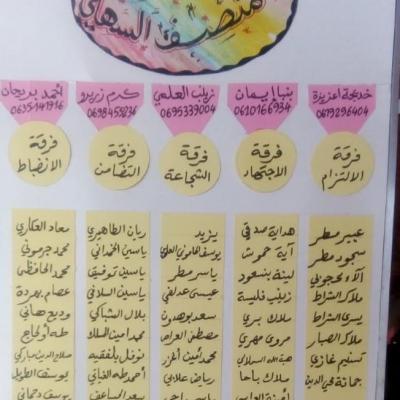 منصف السهلي
خديجة اعزيزة
0619296404
فرقة
الالتزام
عبير مطر
سجود مطر
آلاء محجوبي
ملاك الشراط
يسرى الشراط
ملاك الصبار
تسنيم غازي
جمانة محي الدين
ينبا إيمان
0610166934
فرقة
الاجتهاد
هداية صدقي
آية حموش
لينة بنسعود
زينب فليسة
ملاك بري
مروى مهري
هبة الله السلالي
ملاك باحا
زينب العلمي
0695339004
فرقة
الشجاعة
يزيد
يوسف الهاموني العلوي
ياسر مطر
عيسى عدلفي
سعد بوهدون
مصطفى العراص
محمد ثمين أطرز
رياض علابي
كرم زريرو
0698459236
فرقة
التضامن
ريان الطاهيري
ياسين الحمداني
ياسين توفيق
ياسين السلافي
بلال الشباكي
محمد امين الملك
نوفل بلفقيه
أحمد طه الغباني
سعد المساعف
أحمد بريجان
0635141916
فرقة
الانضباط
معاد العكاري
محمد جرموني
محمد الحافظي
عصام بهردة
وديع هاني
طه أولحاج
صلاح الدين مباركي
يوسف الطويل
يوسف دحماني